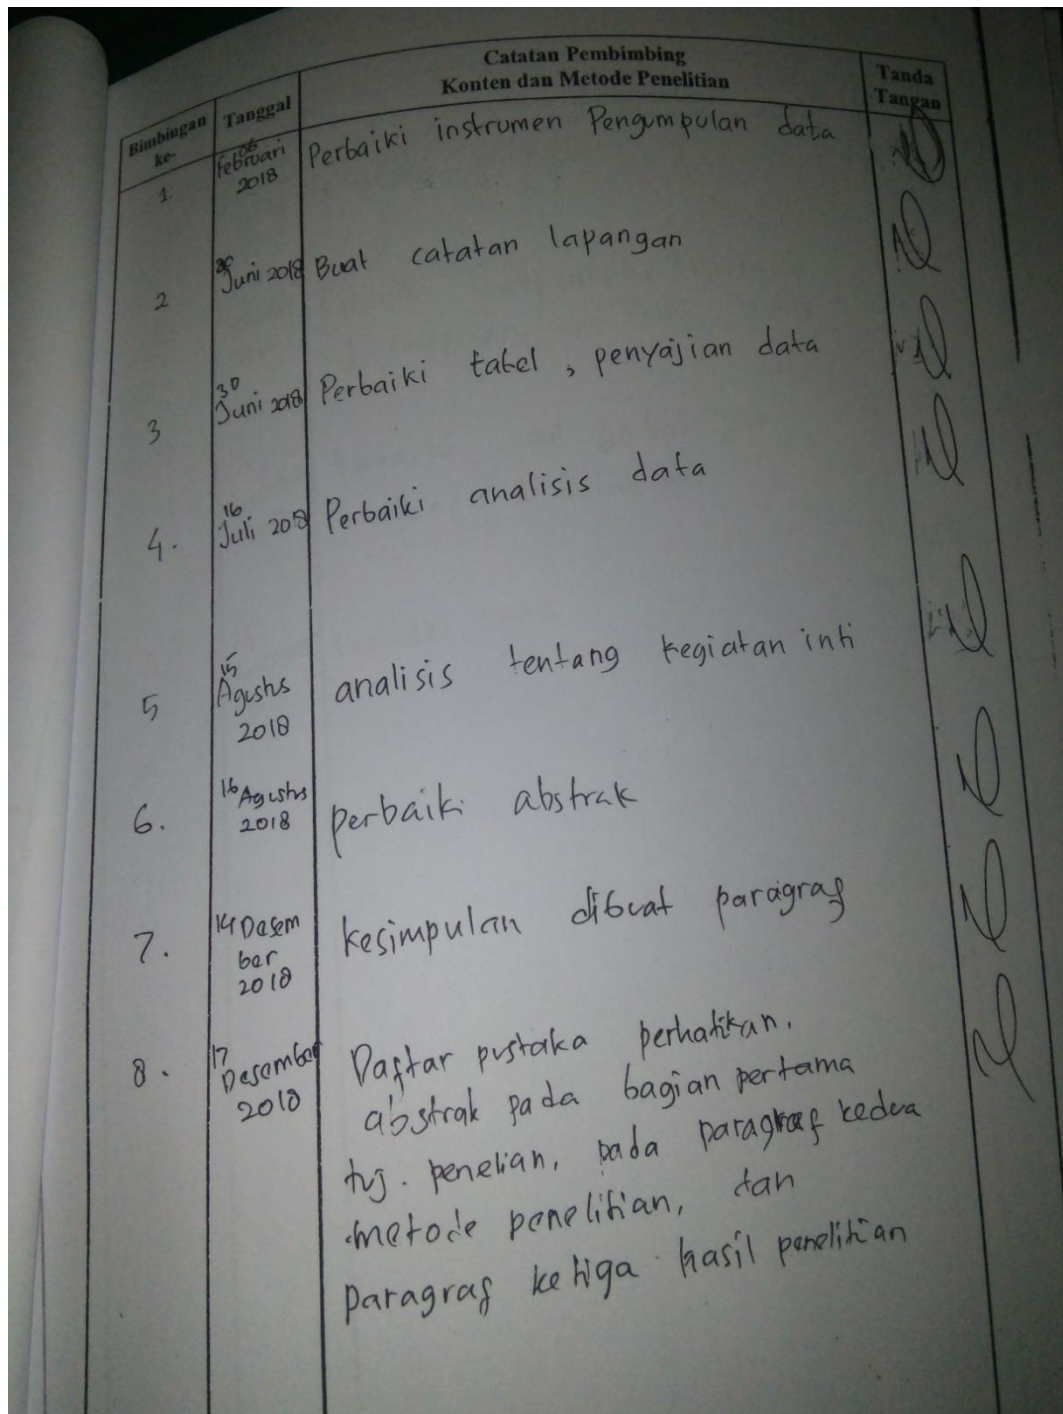 Bimbingan ke-
Tanggal
Catatan Pembimbing
Konten dan Metode Penelitian
Tanda
Tangan
1.
06
Februari
2018
Perbaiki instrumen Pengumpulan data
2
Juni 2018
Buat catatan lapangan
3
30
Juni 2018
Perbaiki tabel, penyajian data
4.
16
Juli 2018
Perbaiki analisis data
5
15
Agustus
2018
analisis tentang kegiatan inti
6.
16 Agustus
2018
perbaiki abstrak
7.
14 Desem
ber
2018
kesimpulan dibuat paragraf
8.
17
Desember
2018
Daftar pustaka perhatikan.
abstrak pada bagian pertama
tuj. penelian, pada paragraf kedua
metode penelitian, dan
paragraf ketiga hasil penelitian